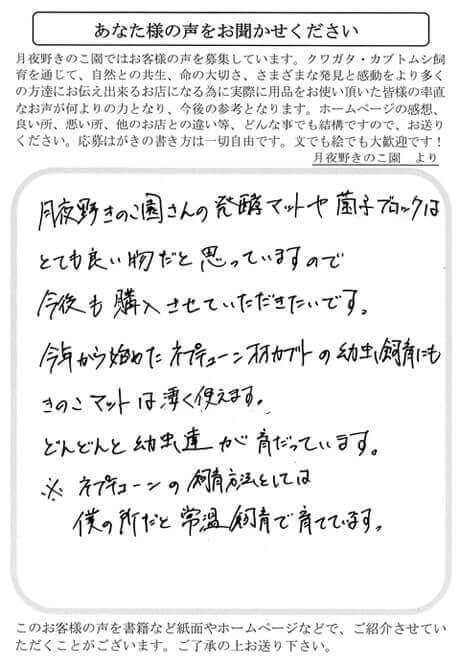 あなた様の声をお聞かせください
月夜野きのこ園ではお客様の声を募集しています。クワガタ・カブトムシ飼
育を通じて、自然との共生、命の大切さ、さまざまな発見と感動をより多く
の方達にお伝え出来るお店になる為に実際に用品をお使い頂いた皆様の率直
なお声が何よりの力となり、今後の参考となります。ホームページの感想、
良い所、悪い所、他のお店との違い等、どんな事でも結構ですので、お送り
ください。応募はがきの書き方は一切自由です。文でも絵でも大歓迎です！
月夜野きのこ園　より
月夜野きのこ園さんの発酵マットや菌子ブロックは
とても良い物だと思っていますので
今後も購入させていただきたいです。
今年から始めたネプチューンオオカブトの幼虫飼育にも
きのこマットは凄く使えます。
どんどんと幼虫達が育だっています。
※ ネプチューンの飼育方法としては
僕の所だと常温飼育で育てています。
このお客様の声を書籍など紙面やホームページなどで、ご紹介させていた
だくことがございます。ご了承の上お送り下さい。